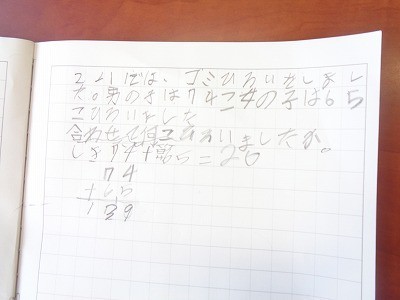 2よ1では、ゴミひろいをしまし
た。男の子は74こ女の子は65
こひろいました
合わせて何こひろいましたか。
しき74+
74
+65
139